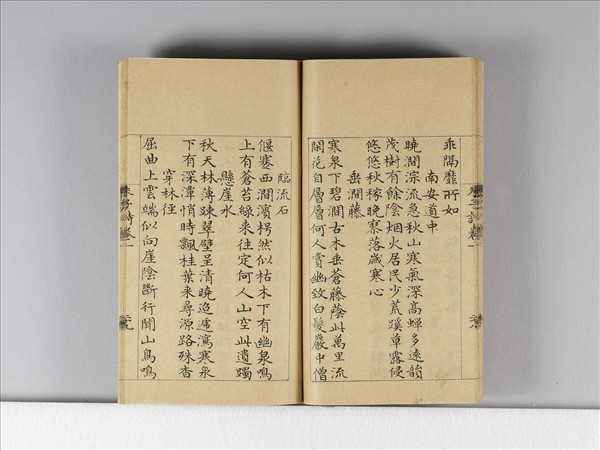 乖隔靡所如
南安道中
曉澗淙流急秋山寒氣深高蟬多遠韻
茂樹有餘陰烟火居民少荒蹊草露侵
悠悠秋稼晚寥落歲寒心
垂澗藤
寒泉下碧澗古木垂蒼藤蔭此萬里流
閑花自層層何人賞幽致白髮巖中僧
臨流石
偃蹇西澗濱枵然似枯木下有幽泉鳴
上有蒼苔綠來往定何人山空此遺躅
懸崖水
秋天林薄疎翠壁呈清曉迢遞瀉寒泉
下有深潭悄時飄桂葉來尋源路殊杳
穿林徑
屈曲上雲端似向崖陰斷行聞山鳥鳴